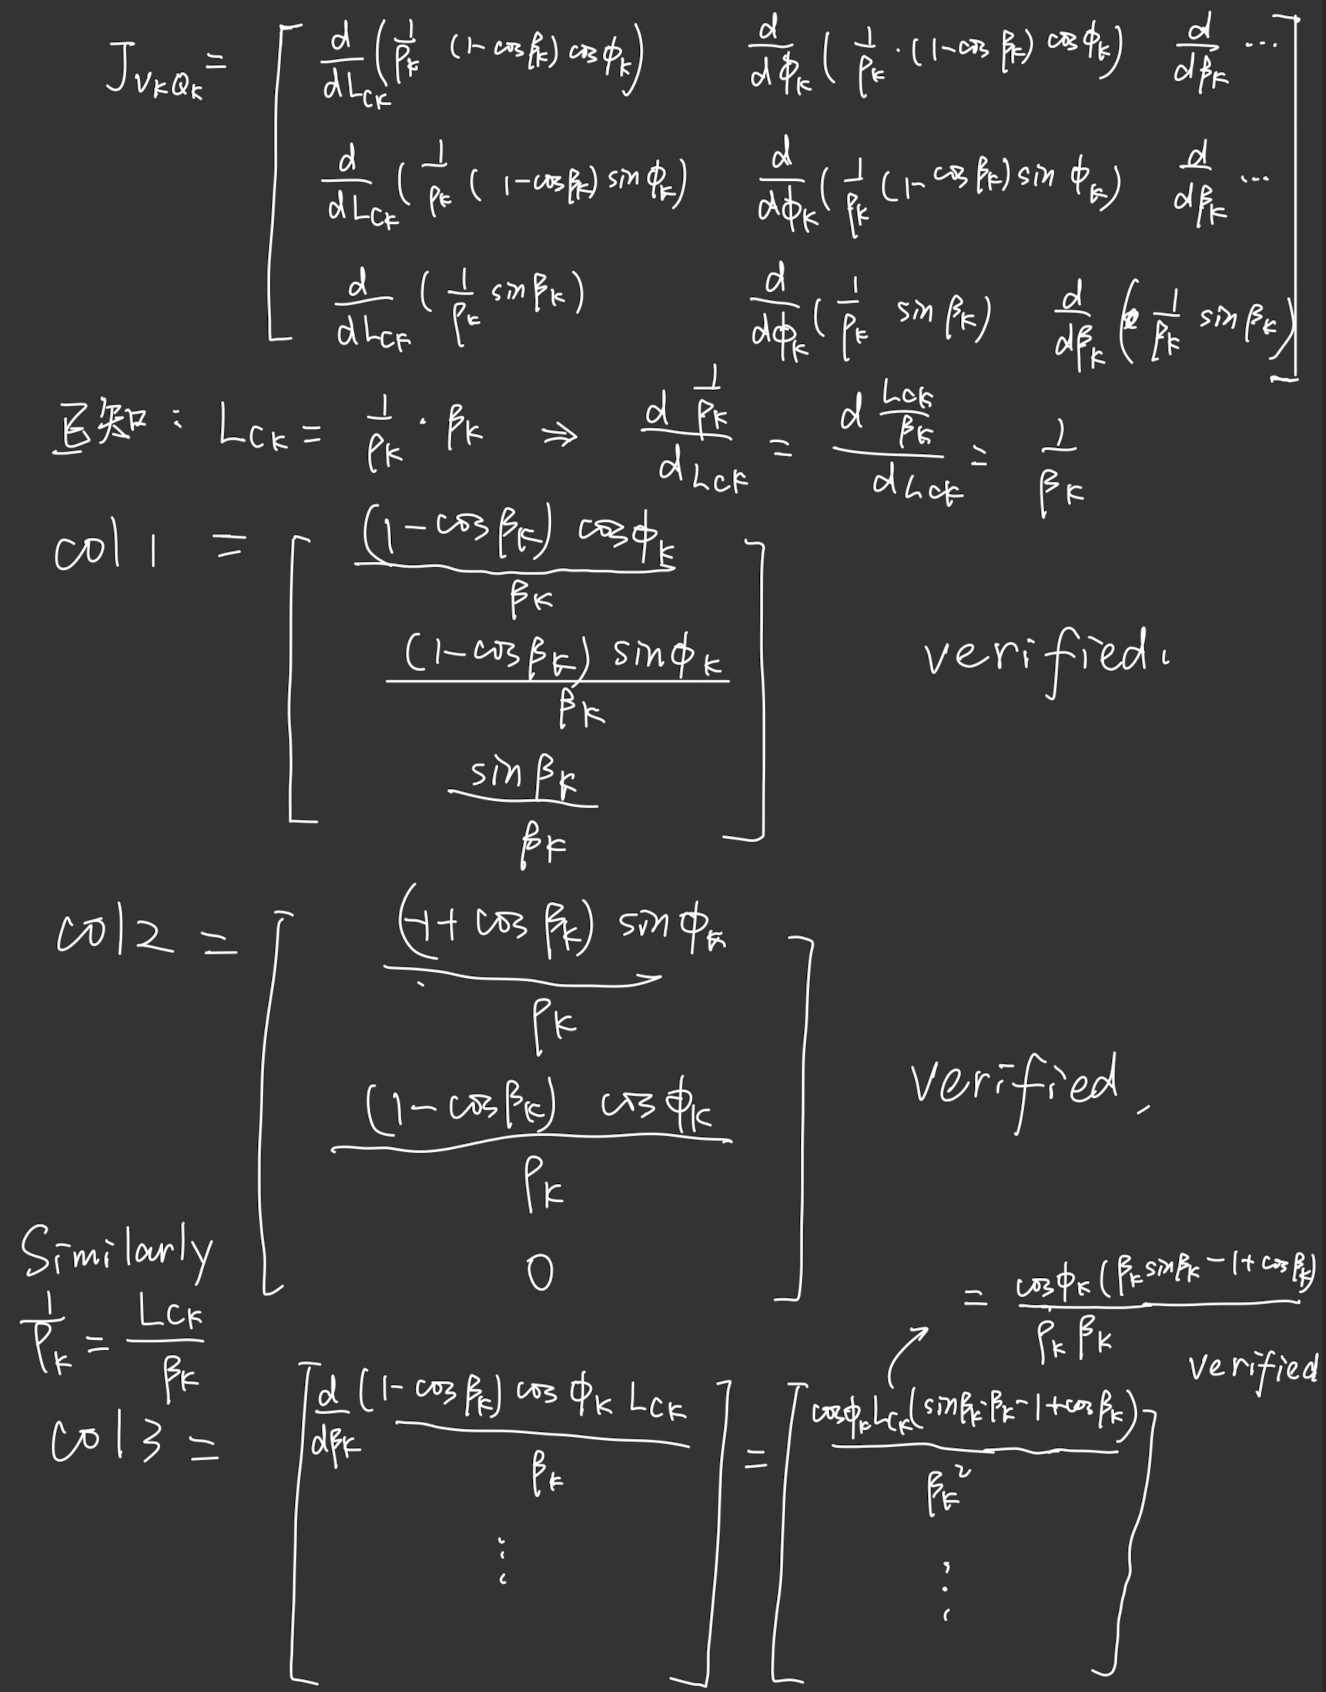 J_{V_K Q_K} = [ d/dL_{CK} (1/ρ_K (1-cos β_K) cos ϕ_K)   d/dϕ_K (1/ρ_K · (1-cos β_K) cos ϕ_K)   d/dβ_K ...
d/dL_{CK} (1/ρ_K (1-cos β_K) sin ϕ_K)   d/dϕ_K (1/ρ_K (1-cos β_K) sin ϕ_K)   d/dβ_K ...
d/dL_{CK} (1/ρ_K sin β_K)   d/dϕ_K (1/ρ_K sin β_K)   d/dβ_K (1/ρ_K sin β_K) ]
已知: L_{CK} = 1/ρ_K · β_K ⇒ d(1/ρ_K)/dL_{CK} = d(L_{CK}/β_K)/dL_{CK} = 1/β_K
col 1 = [ (1-cos β_K) cos ϕ_K / β_K
(1-cos β_K) sin ϕ_K / β_K
sin β_K / β_K ]
verified.
col 2 = [ (-1+cos β_K) sin ϕ_K / ρ_K
(1-cos β_K) cos ϕ_K / ρ_K
0 ]
verified,
Similarly
1/ρ_K = L_{CK}/β_K
col 3 = [ d/dβ_K (1-cos β_K) cos ϕ_K L_{CK} / β_K
⋮ ]
= [ cos ϕ_K L_{CK} (sin β_K · β_K - 1 + cos β_K) / β_K^2
⋮ ]
= cos ϕ_K (β_K sin β_K - 1 + cos β_K) / ρ_K β_K
verified